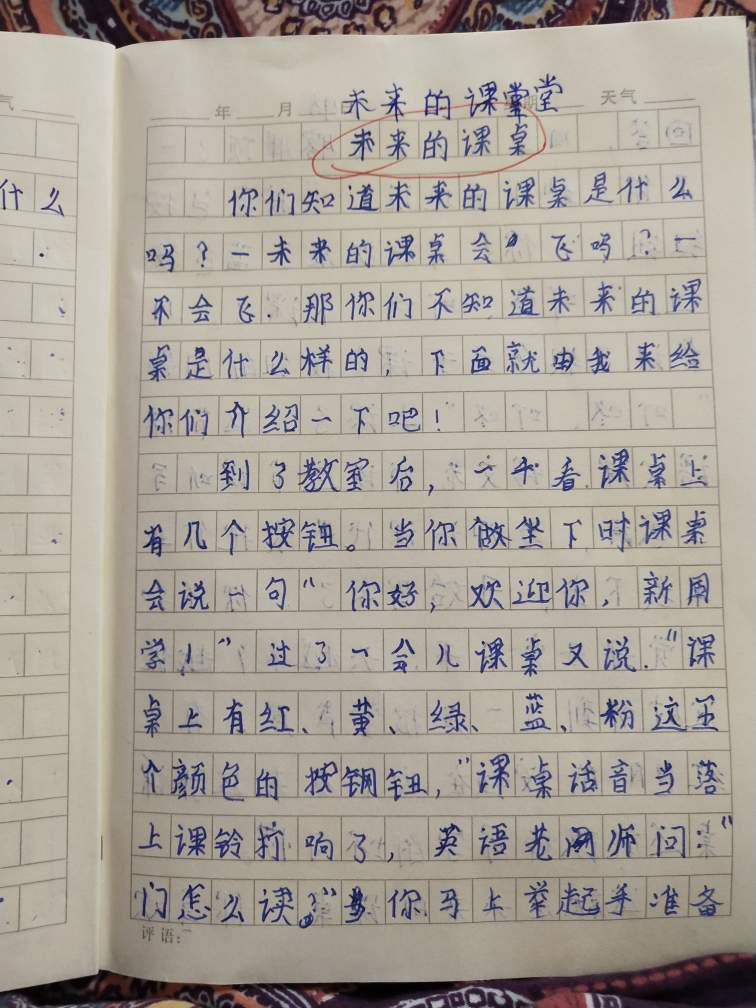 气
什么
年 月 日 星期 天气
未来的课堂
未来的课桌
你们知道未来的课桌是什么
吗?一未来的课桌会"飞吗?一
不会飞.那你们不知道未来的课
桌是什么样的,下面就由我来给
你们介绍一下吧!
到了教室后,一个看课桌上
有几个按钮。当你做坐下时课桌
会说一句"你好,欢迎你,新同
学!"过了一会儿课桌又说."课
桌上有红、黄、绿、蓝、粉这五
个颜色的按钮,"课桌话音当落
上课铃打响了,英语老师问:"
门怎么读?"你马上举起手准备
评语: